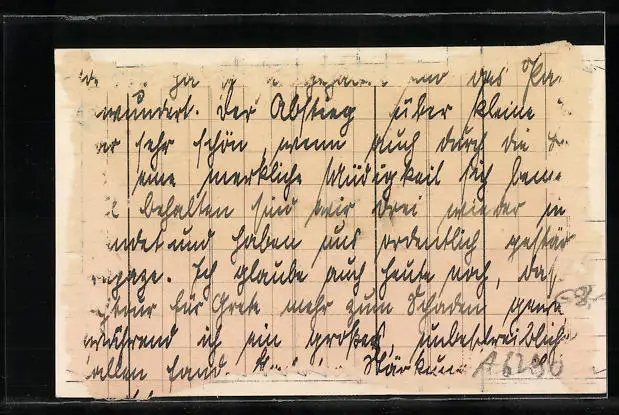 das
wundert. Der Abstieg über kleine
sehr schön, wenn auch durch die
eine merkliche Müdigkeit sich
behalten sind wir drei wieder in
und haben uns ordentlich gestär
Ich glaube auch heute noch, das
tour für Grete mehr zum Schaden
58.-
während ich ein großes, unbestreitbliche
fand. Stärkun
A6290